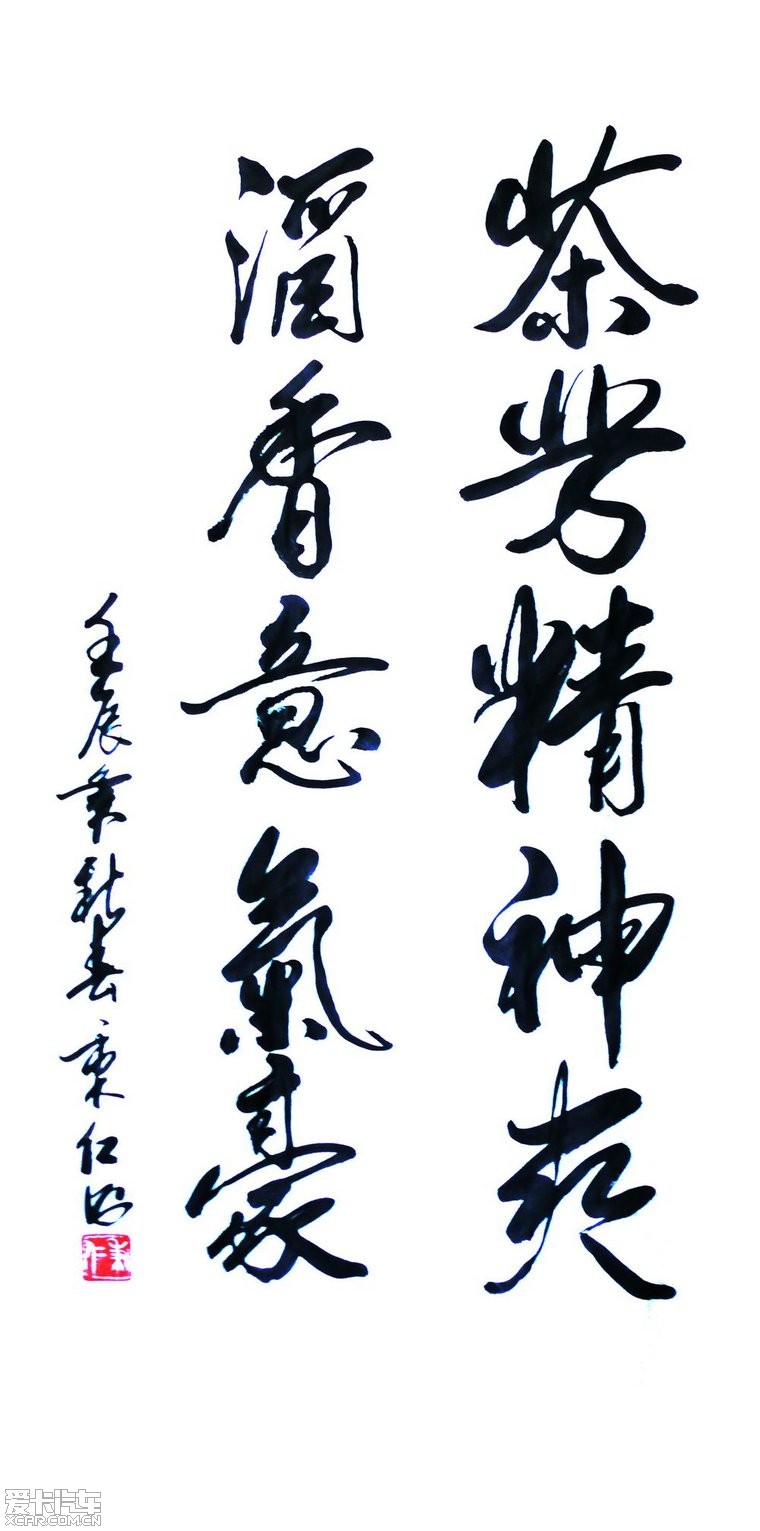 茶芳精神爽
酒香意氣豪
壬辰年新春秉仁
爱卡汽车
XCAR.COM.CN